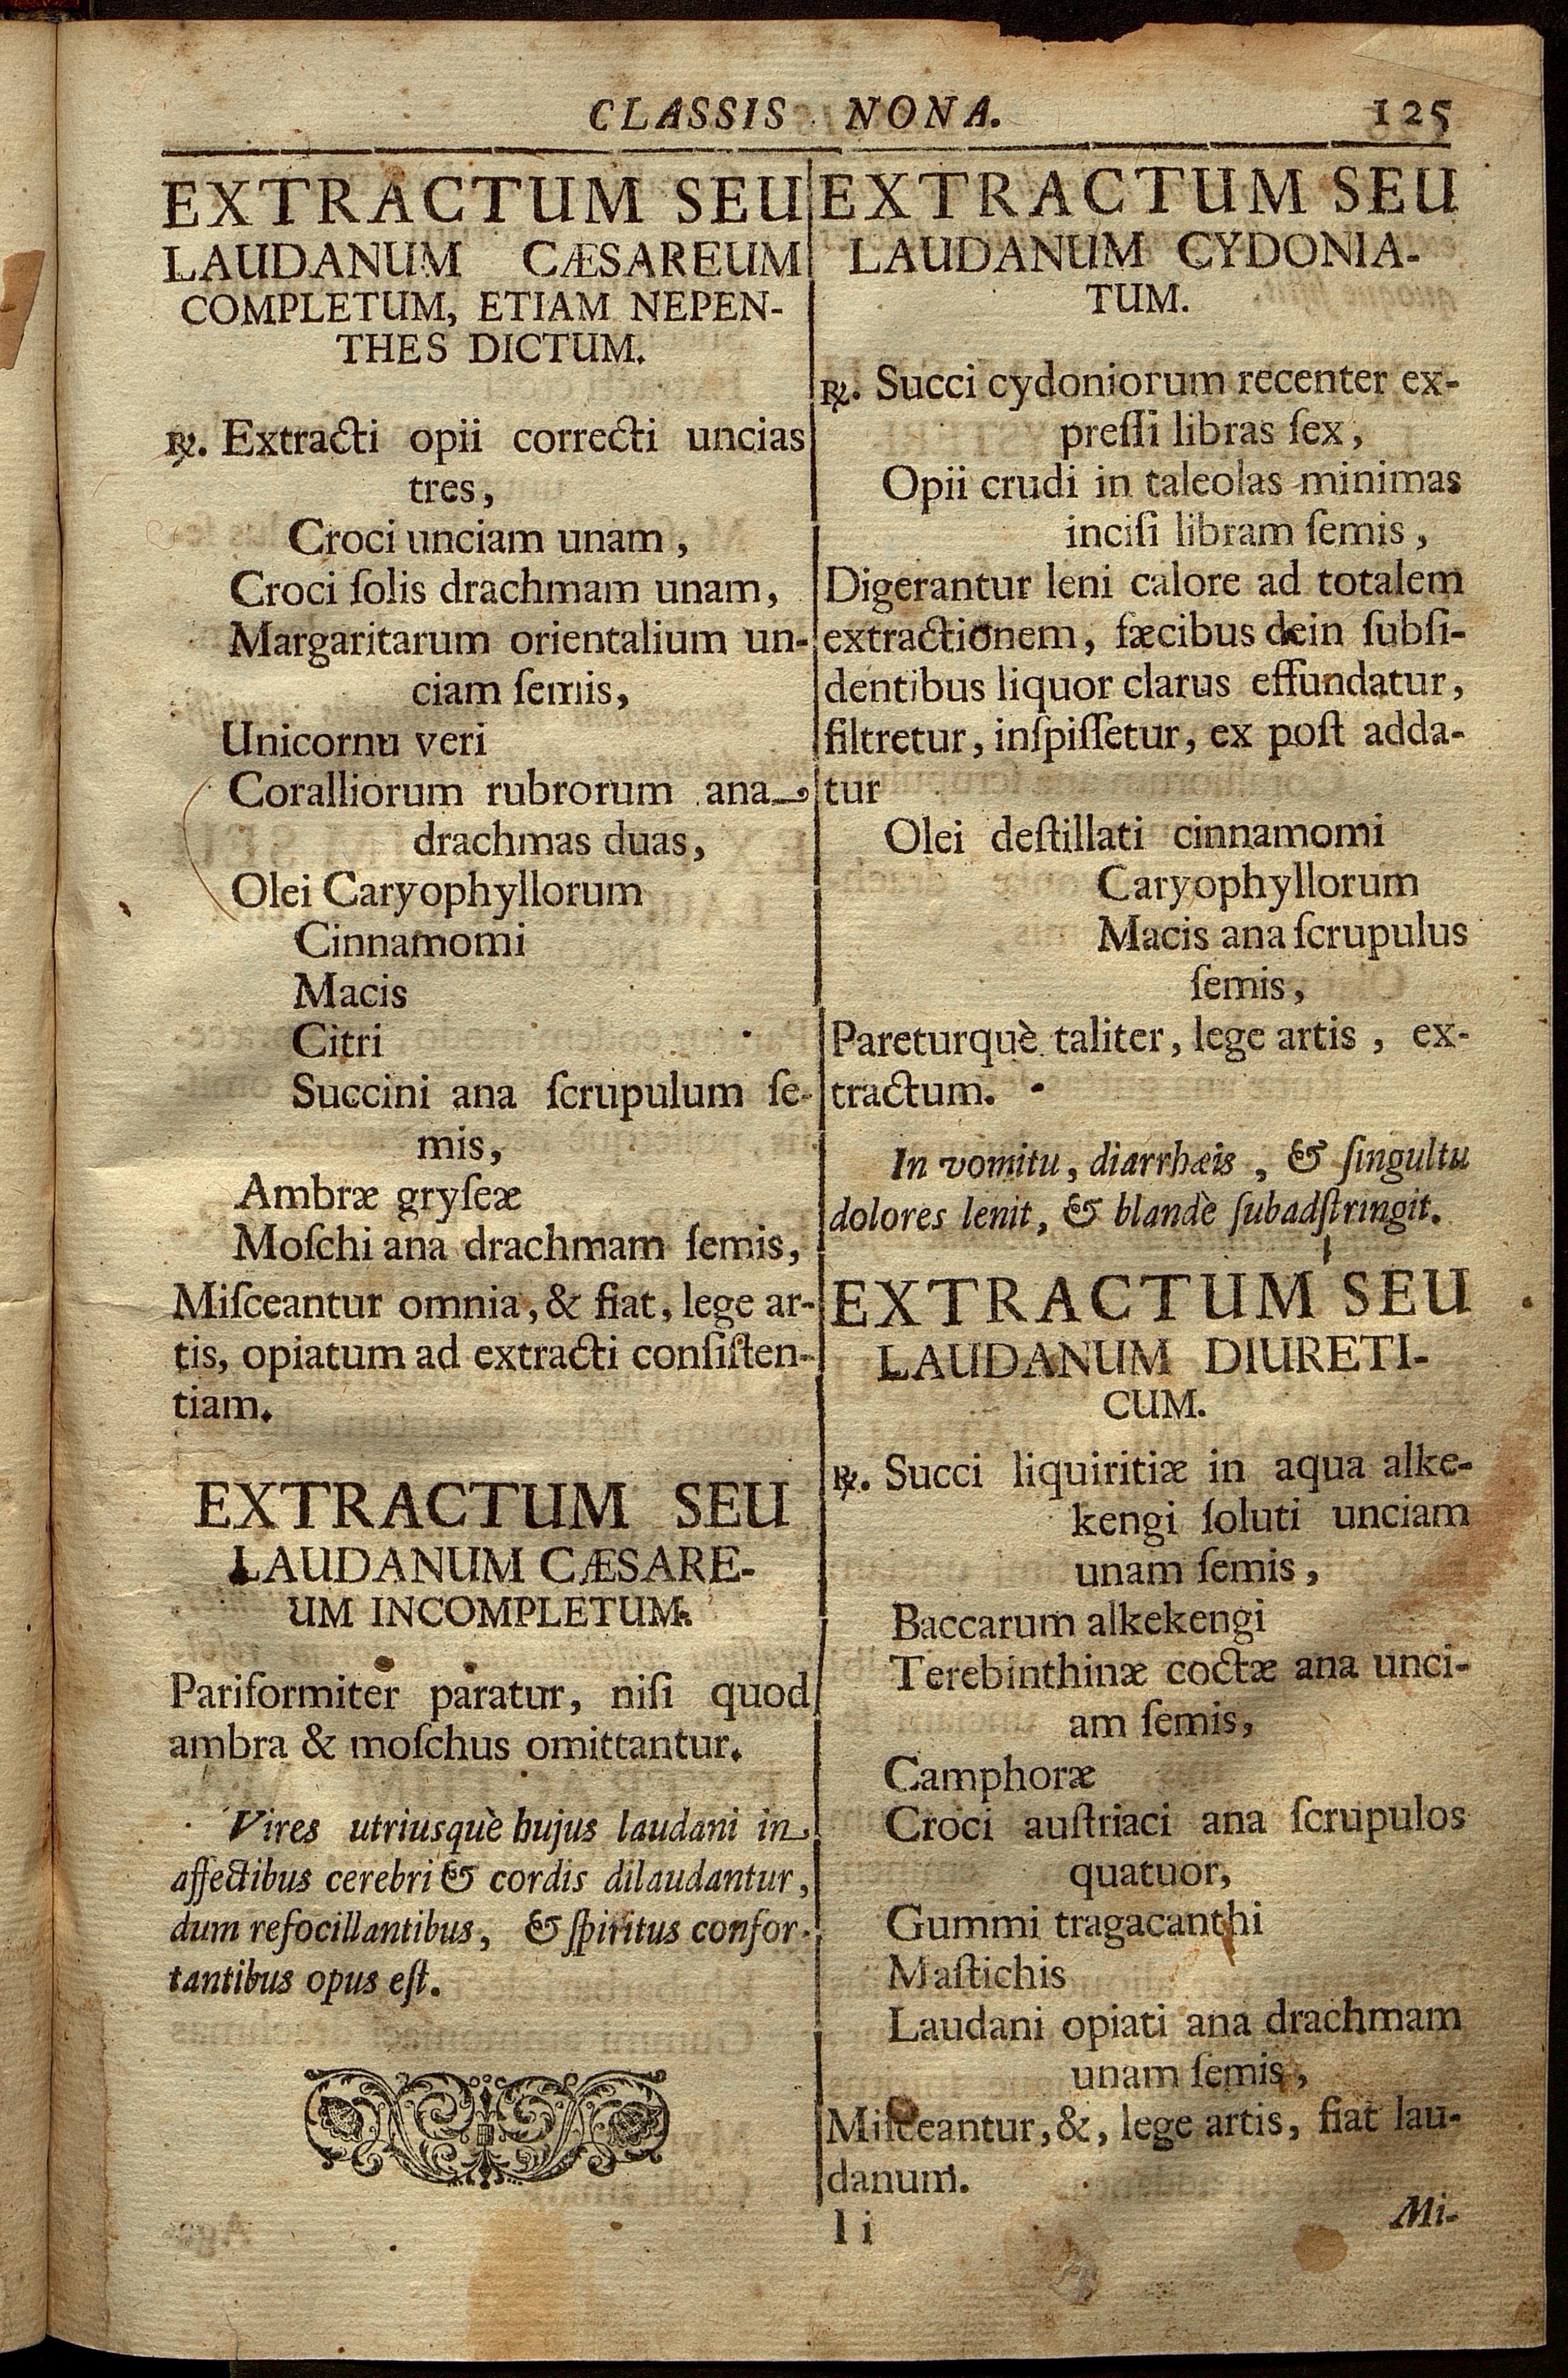 CLASSIS NONA. 125
EXTRACTUM SEU
LAUDANUM CÆSAREUM
COMPLETUM, ETIAM NEPEN-
THES DICTUM.
℞. Extracti opii correcti uncias
tres,
Croci unciam unam,
Croci ſolis drachmam unam,
Margaritarum orientalium un-
ciam ſemis,
Unicornu veri
Coralliorum rubrorum ana
drachmas duas,
Olei Caryophyllorum
Cinnamomi
Macis
Citri
Succini ana ſcrupulum ſe-
mis,
Ambræ gryſeæ
Moſchi ana drachmam ſemis,
Miſceantur omnia, & fiat, lege ar-
tis, opiatum ad extracti conſiſten-
tiam.
EXTRACTUM SEU
LAUDANUM CÆSARE-
UM INCOMPLETUM.
Pariformiter paratur, niſi quod
ambra & moſchus omittantur.
Vires utriusquè hujus laudani in
affectibus cerebri & cordis dilaudantur,
dum refocillantibus, & ſpiritus confor-
tantibus opus eſt.
EXTRACTUM SEU
LAUDANUM CYDONIA-
TUM.
℞. Succi cydoniorum recenter ex-
preſſi libras ſex,
Opii crudi in taleolas minimas
inciſi libram ſemis,
Digerantur leni calore ad totalem
extractionem, fæcibus dein ſubſi-
dentibus liquor clarus effundatur,
filtretur, inſpiſſetur, ex poſt adda-
tur
Olei deſtillati cinnamomi
Caryophyllorum
Macis ana ſcrupulus
ſemis,
Pareturquè taliter, lege artis, ex-
tractum.
In vomitu, diarrhæis, & ſingultu
dolores lenit, & blandè ſubadſtringit.
EXTRACTUM SEU
LAUDANUM DIURETI-
CUM.
℞. Succi liquiritiæ in aqua alke-
kengi ſoluti unciam
unam ſemis,
Baccarum alkekengi
Terebinthinæ coctæ ana unci-
am ſemis,
Camphoræ
Croci auſtriaci ana ſcrupulos
quatuor,
Gummi tragacanthi
Maſtichis
Laudani opiati ana drachmam
unam ſemis,
Miſceantur, &, lege artis, fiat lau-
danum.
I i Mi-